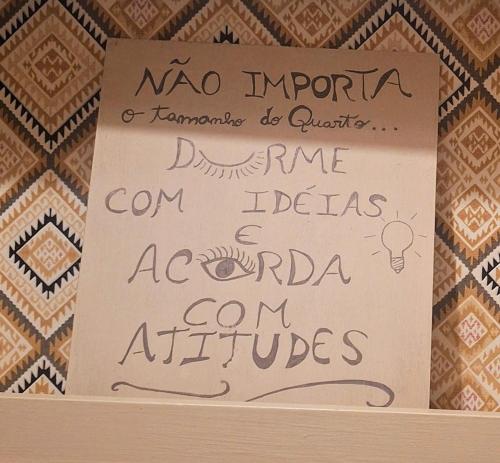 NÃO IMPORTA
o tamanho do Quarto...
DORME
COM IDÉIAS
E
ACORDA
COM
ATITUDES